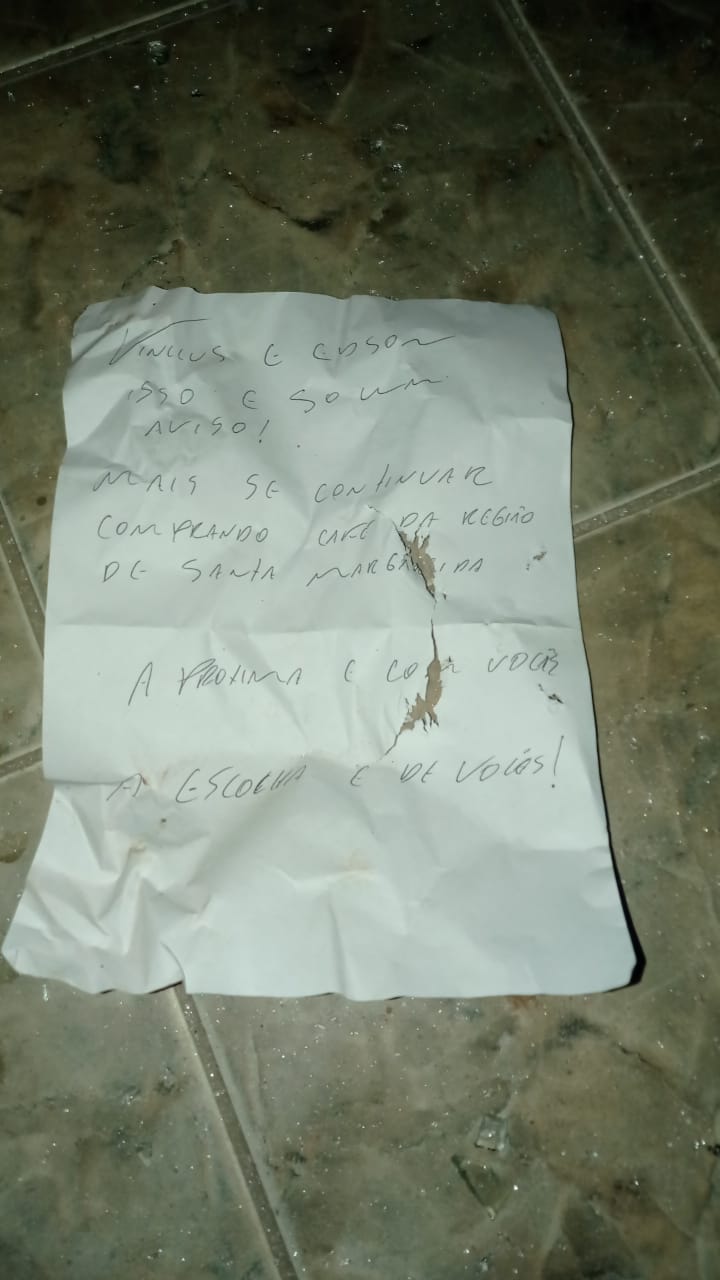 VINICIUS E EDSON
ISSO E SO UM
AVISO!
MAIS SE CONTINUAR
COMPRANDO CAFE DA REGIÃO
DE SANTA MARGARIDA
A PROXIMA E COM VOCÊS
A ESCOLHA E DE VOCÊS!